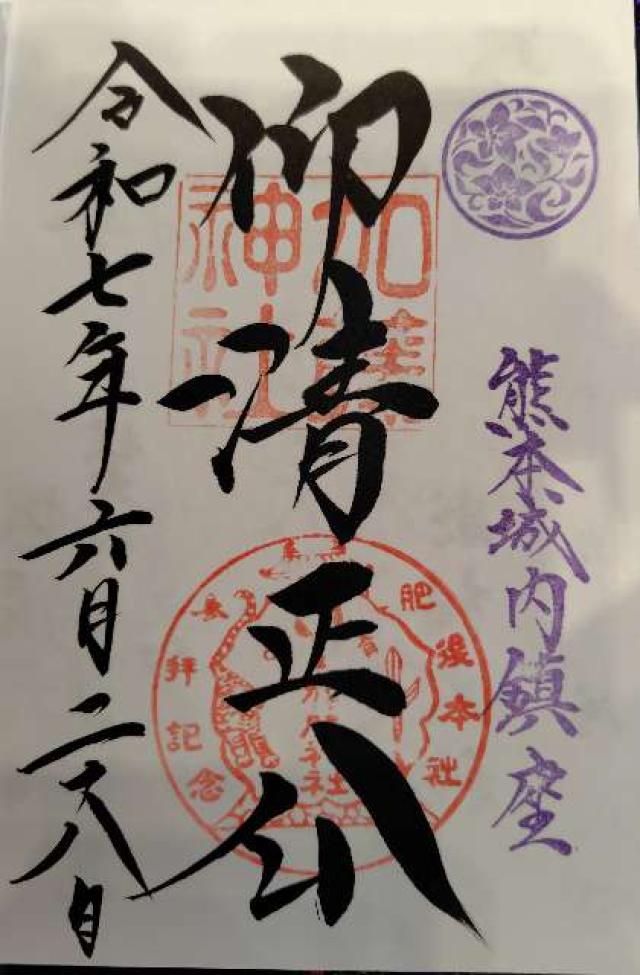 熊本城内鎮座
仰清正公
加藤
神社
肥後本社
参拝記念
令和七年六月二十八日